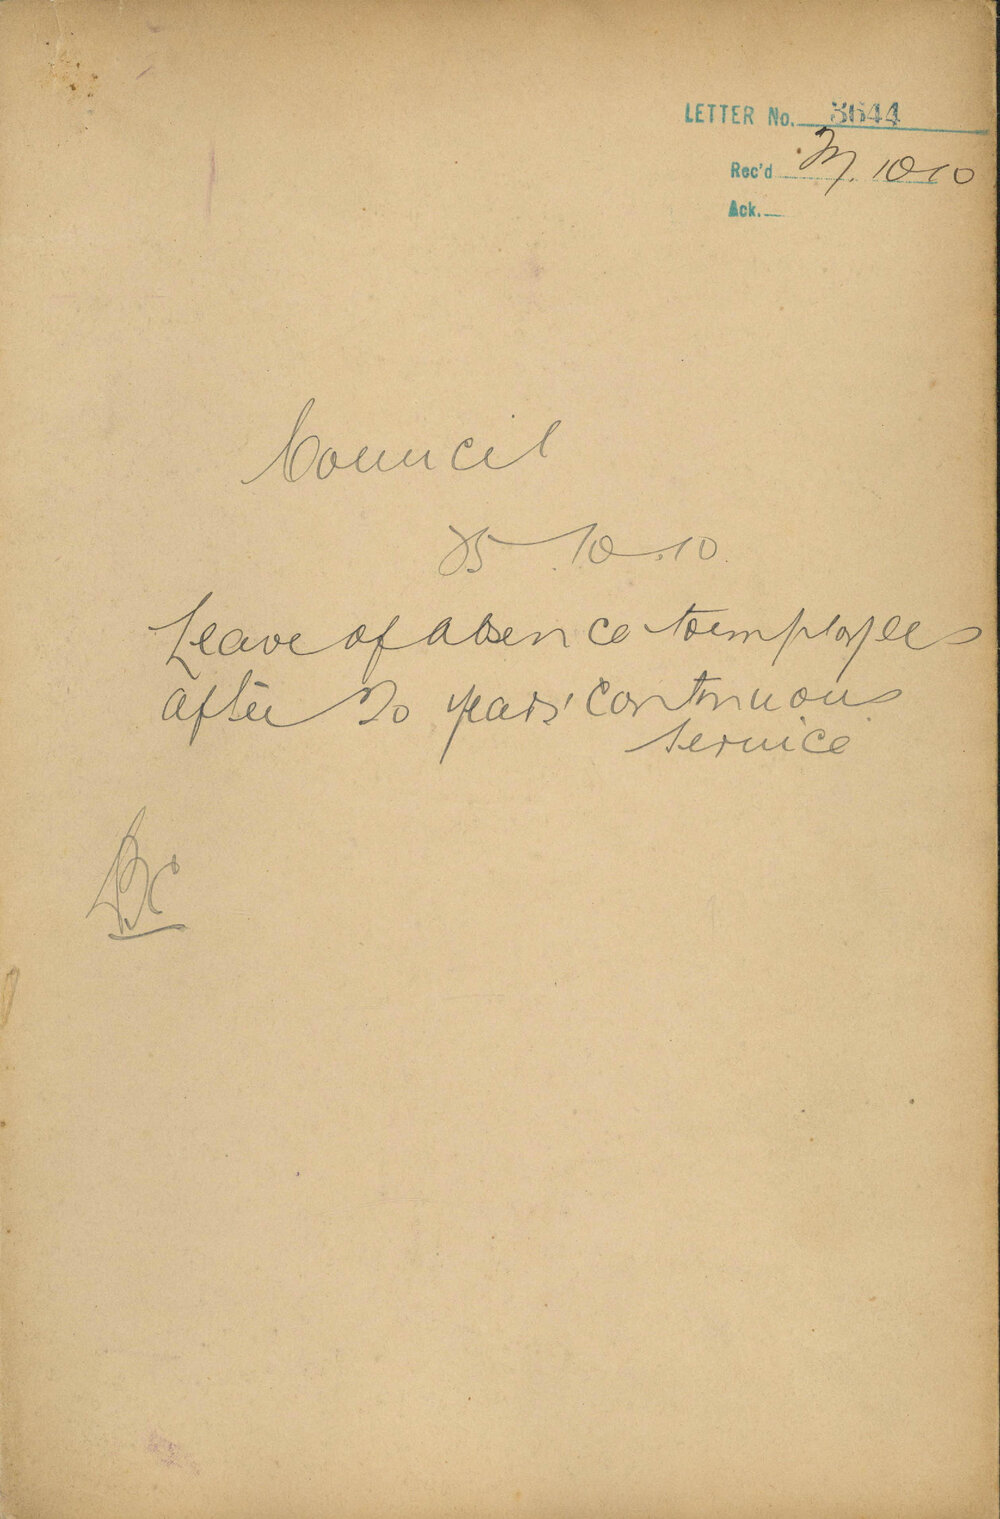 LETTER No. 3644
Rec'd 27.10.10
Ack.
Council
25.10.10
Leave of absence to employees
after 20 years' continuous
service